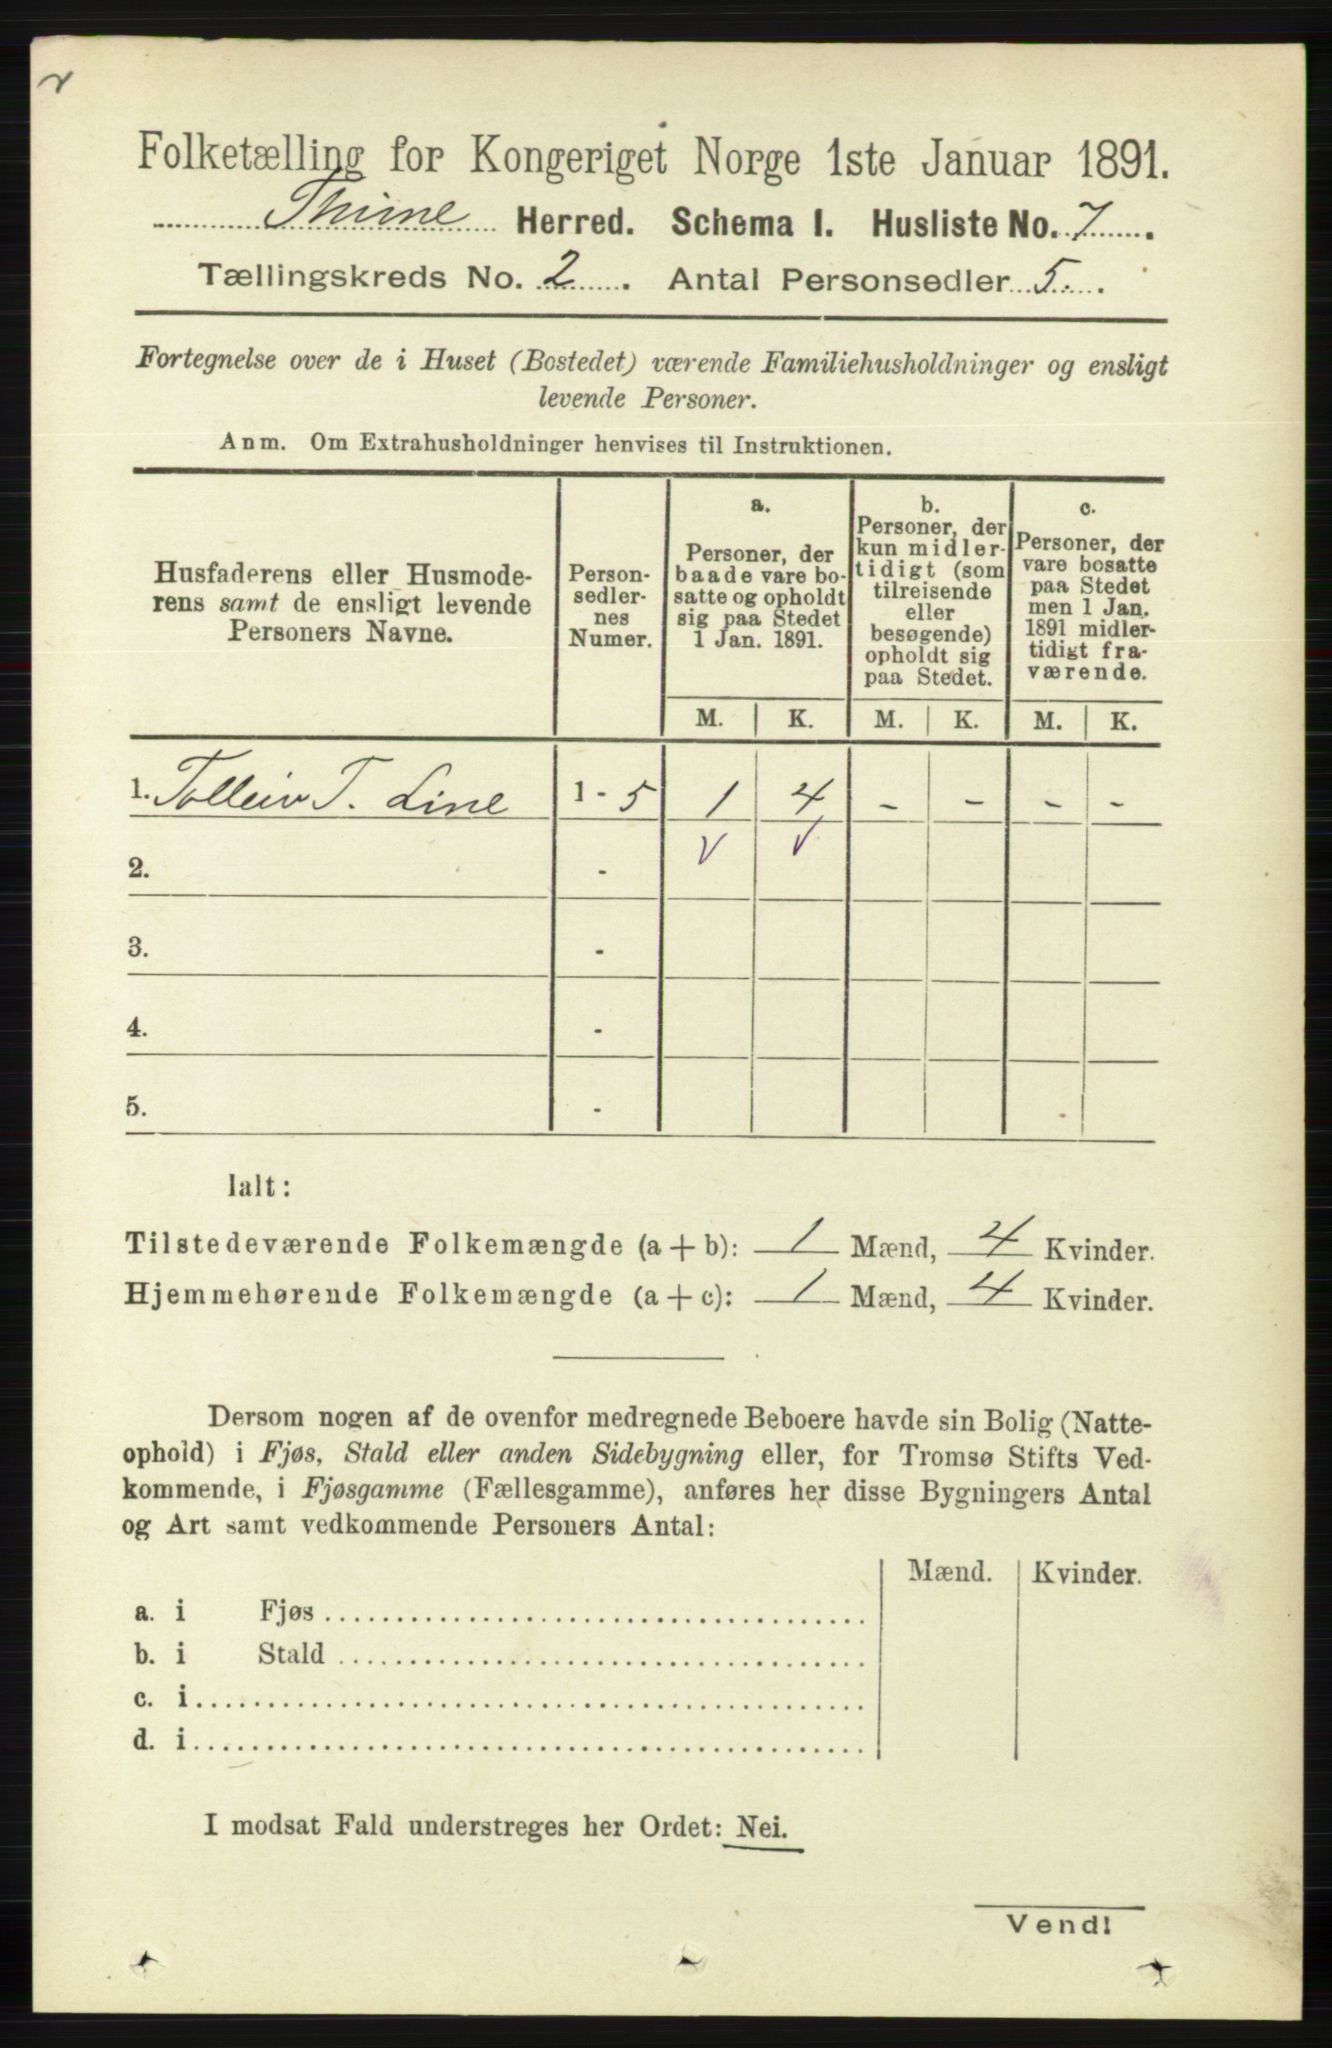 Folketælling for Kongeriget Norge 1ste Januar 1891.
Thime Herred. Schema I. Husliste No. 7.
Tællingskreds No. 2. Antal Personsedler 5.
Fortegnelse over de i Huset (Bostedet) værende Familiehusholdninger og ensligt
levende Personer.
Anm. Om Extrahusholdninger henvises til Instruktionen.
Husfaderens eller Husmode-
rens samt de ensligt levende
Personers Navne.
Person-
sedler-
nes
Numer.
a.
Personer, der
baade vare bo-
satte og opholdt
sig paa Stedet
1 Jan. 1891.
b.
Personer, der
kun midler-
tidigt (som
tilreisende
eller
besøgende)
opholdt sig
paa Stedet.
c.
Personer, der
vare bosatte
paa Stedet
men 1 Jan.
1891 midler-
tidigt fra-
værende.
M. K. M. K. M. K.
1. Tolleiv T. Line 1 - 5 1 4 - - - -
2. - v v
3. -
4. -
5. -
Ialt:
Tilstedeværende Folkemængde (a + b): 1 Mænd, 4 Kvinder.
Hjemmehørende Folkemængde (a + c): 1 Mænd, 4 Kvinder.
Dersom nogen af de ovenfor medregnede Beboere havde sin Bolig (Natte-
ophold) i Fjøs, Stald eller anden Sidebygning eller, for Tromsø Stifts Ved-
kommende, i Fjøsgamme (Fællesgamme), anføres her disse Bygningers Antal
og Art samt vedkommende Personers Antal:
Mænd. Kvinder.
a. i Fjøs
b. i Stald
c. i
d. i
I modsat Fald understreges her Ordet: Nei.
Vend!